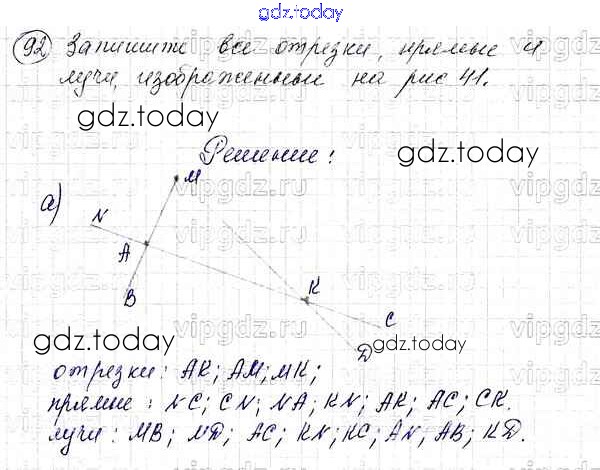 gdz.today
92 Запишите все отрезки, прямые и
лучи, изображенные на рис 41.
gdz.today
Решение:
gdz.today
а)
M
N
A
B
K
C
D
gdz.today
gdz.today
отрезки: AK; AM; MK;
прямые: NC; CN; NA; KN; AK; AC; CK.
лучи: MB; MD; AC; KN; KC; AN; AB; KD.
vipgdz.ru